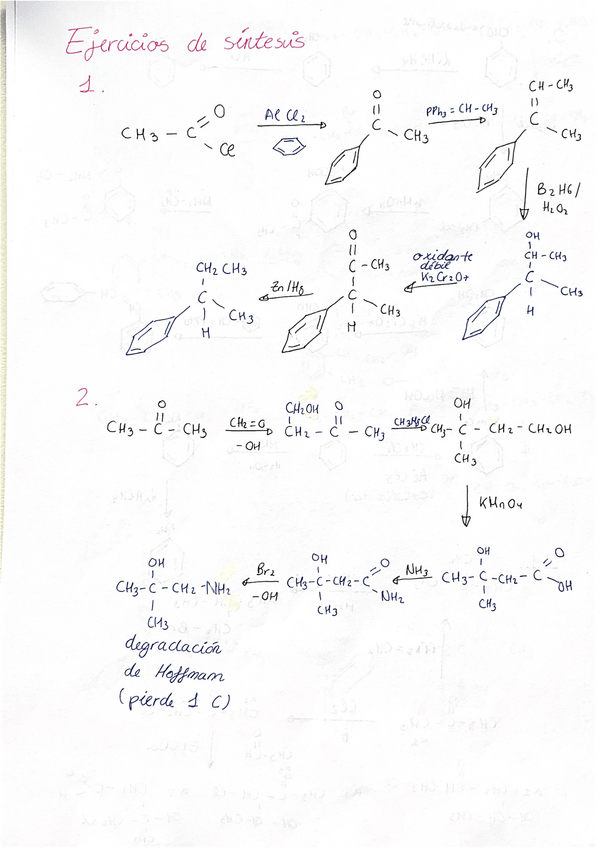 Ejercicios de síntesis
1.
CH3 - C O Cl
AlCl2
O
C
CH3
PPh3 = CH - CH3
CH - CH3
C
CH3
B2H6/
H2O2
OH
CH - CH3
C
CH3
H
oxidante
débil
K2Cr2O7
O
C - CH3
C
CH3
H
Zn/Hg
CH2 CH3
C
CH3
H
2.
O
CH3 - C - CH3
CH2=O
-OH
CH2OH O
CH2 - C - CH3
OH
CH3 - C - CH2 - CH2OH
CH3
KMnO4
OH O
CH3 - C - CH2 - C
OH
CH3
NH3
OH O
CH3 - C - CH2 - C
NH2
CH3
Br2
-OH
OH
CH3 - C - CH2 - NH2
CH3
degradación
de Hoffmam
(pierde 1 C)